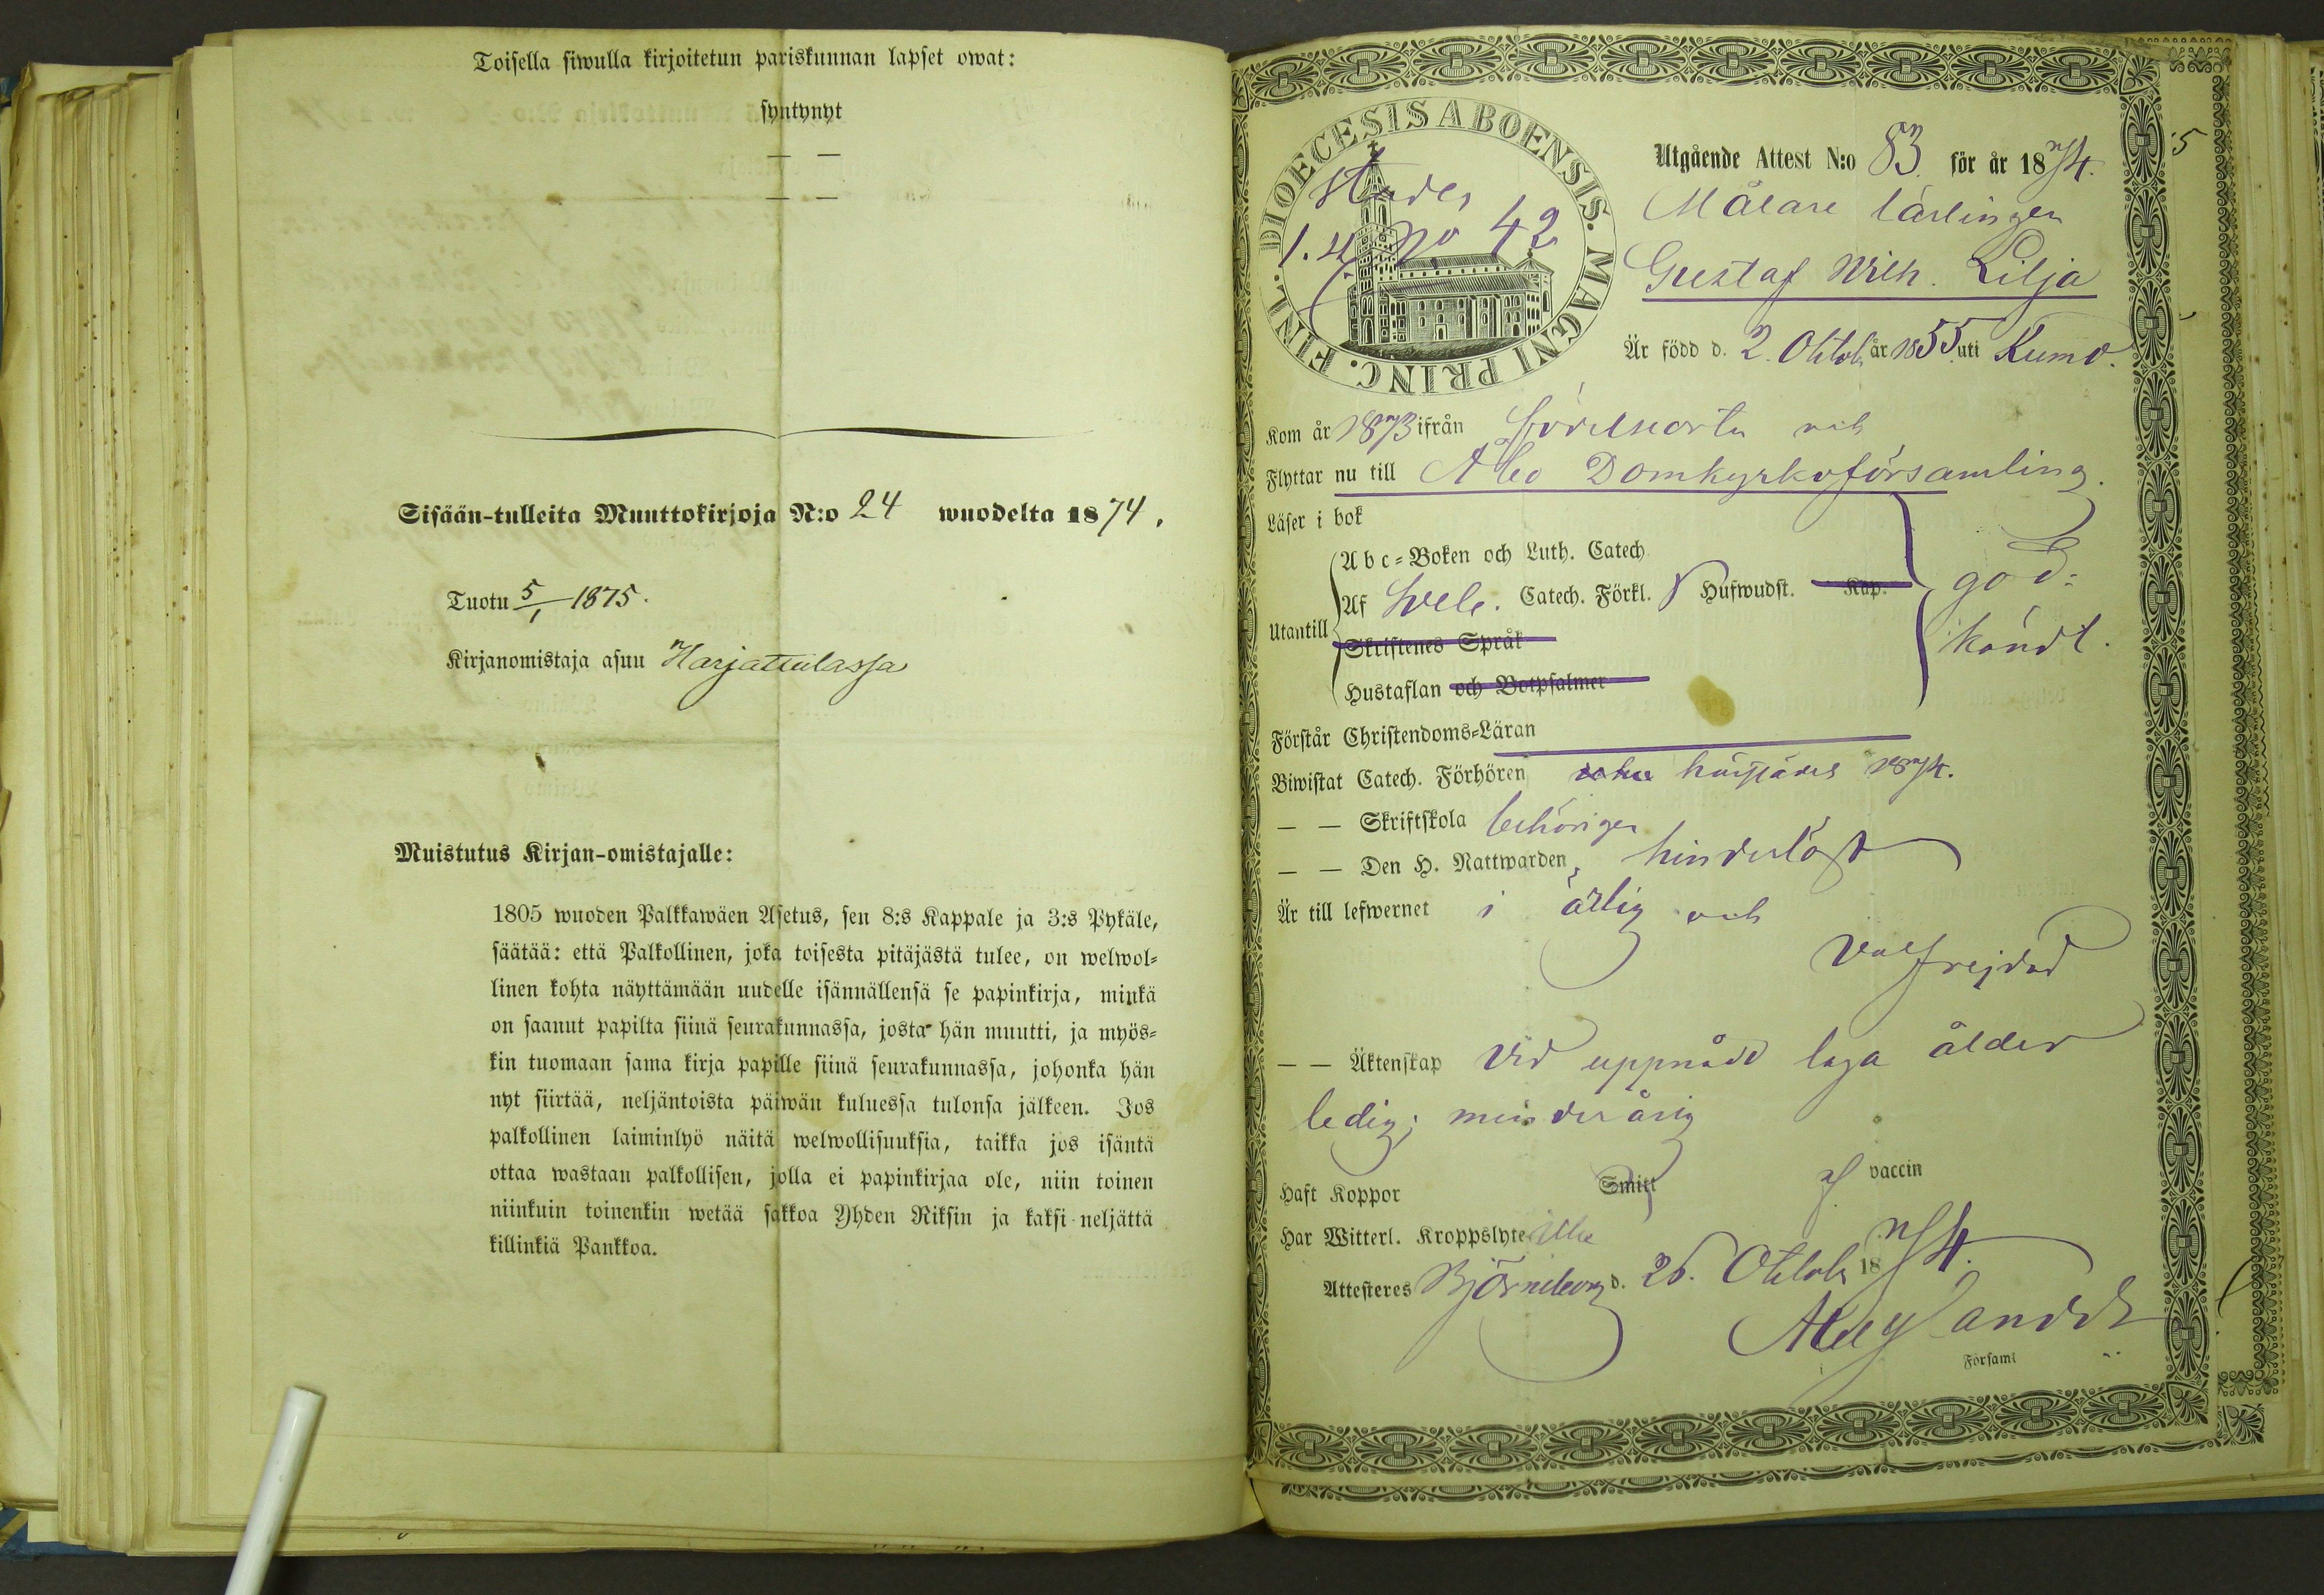 Toisella siwulla kirjoitetun pariskunnan lapset owat:
syntynyt
— —
— —
Sisään-tulleita Muuttokirjoja N:o 24 wuodelta 1874.
Tuotu 5/1 1875.
Kirjanomistaja asuu Harjattulassa
Muistutus Kirjan-omistajalle:
1805 wuoden Palkkawäen Asetus, sen 8:s Kappale ja 3:s Pykäle,
säätää: että Palkollinen, joka toisesta pitäjästä tulee, on welwol-
linen kohta näyttämään uudelle isännällensä se papinkirja, minkä
on saanut papilta siinä seurakunnassa, josta hän muutti, ja myös-
kin tuomaan sama kirja papille siinä seurakunnassa, johonka hän
nyt siirtää, neljäntoista päiwän kuluessa tulonsa jälkeen. Jos
palkollinen laiminlyö näitä welwollisuuksia, taikka jos isäntä
ottaa wastaan palkollisen, jolla ei papinkirjaa ole, niin toinen
niinkuin toinenkin wetää sakkoa Yhden Riksin ja kaksi neljättä
killinkiä Pankkoa.
DIOECESIS ABOENSIS. MAGNI PRINC. FINL.
1.4. No 42
Utgående Attest N:o 83 för år 1874.
5
Målare lärlingen
Gustaf Wilh. Lilja
Är född d. 2. Oktob. år 1855 uti Kumo.
Kom år 1873 ifrån födelseorten och
Flyttar nu till Åbo Domkyrkoförsamling.
Läser i bok
Abc-Boken och Luth. Catech.
Utantill
Af Sveb. Catech. Förkl. 5 Hufwudst. Kap.
god-
känd t.
Skriftenes Språk
Hustaflan och Botpsalmer
Förstår Christendoms-Läran
Biwistat Catech. Förhören härstädes 1874.
— — Skriftskola behörigen
— — Den H. Nattwarden hinderlöst
Är till lefwernet i ärlig och
välfrejdad
— — Äktenskap vid uppnådd laga ålder
ledig; minderårig
Haft Koppor Smitt af vaccin
Har Witterl. Kroppslyte
Attesteres Björneborg d. 26. Oktob. 1874.
Församl